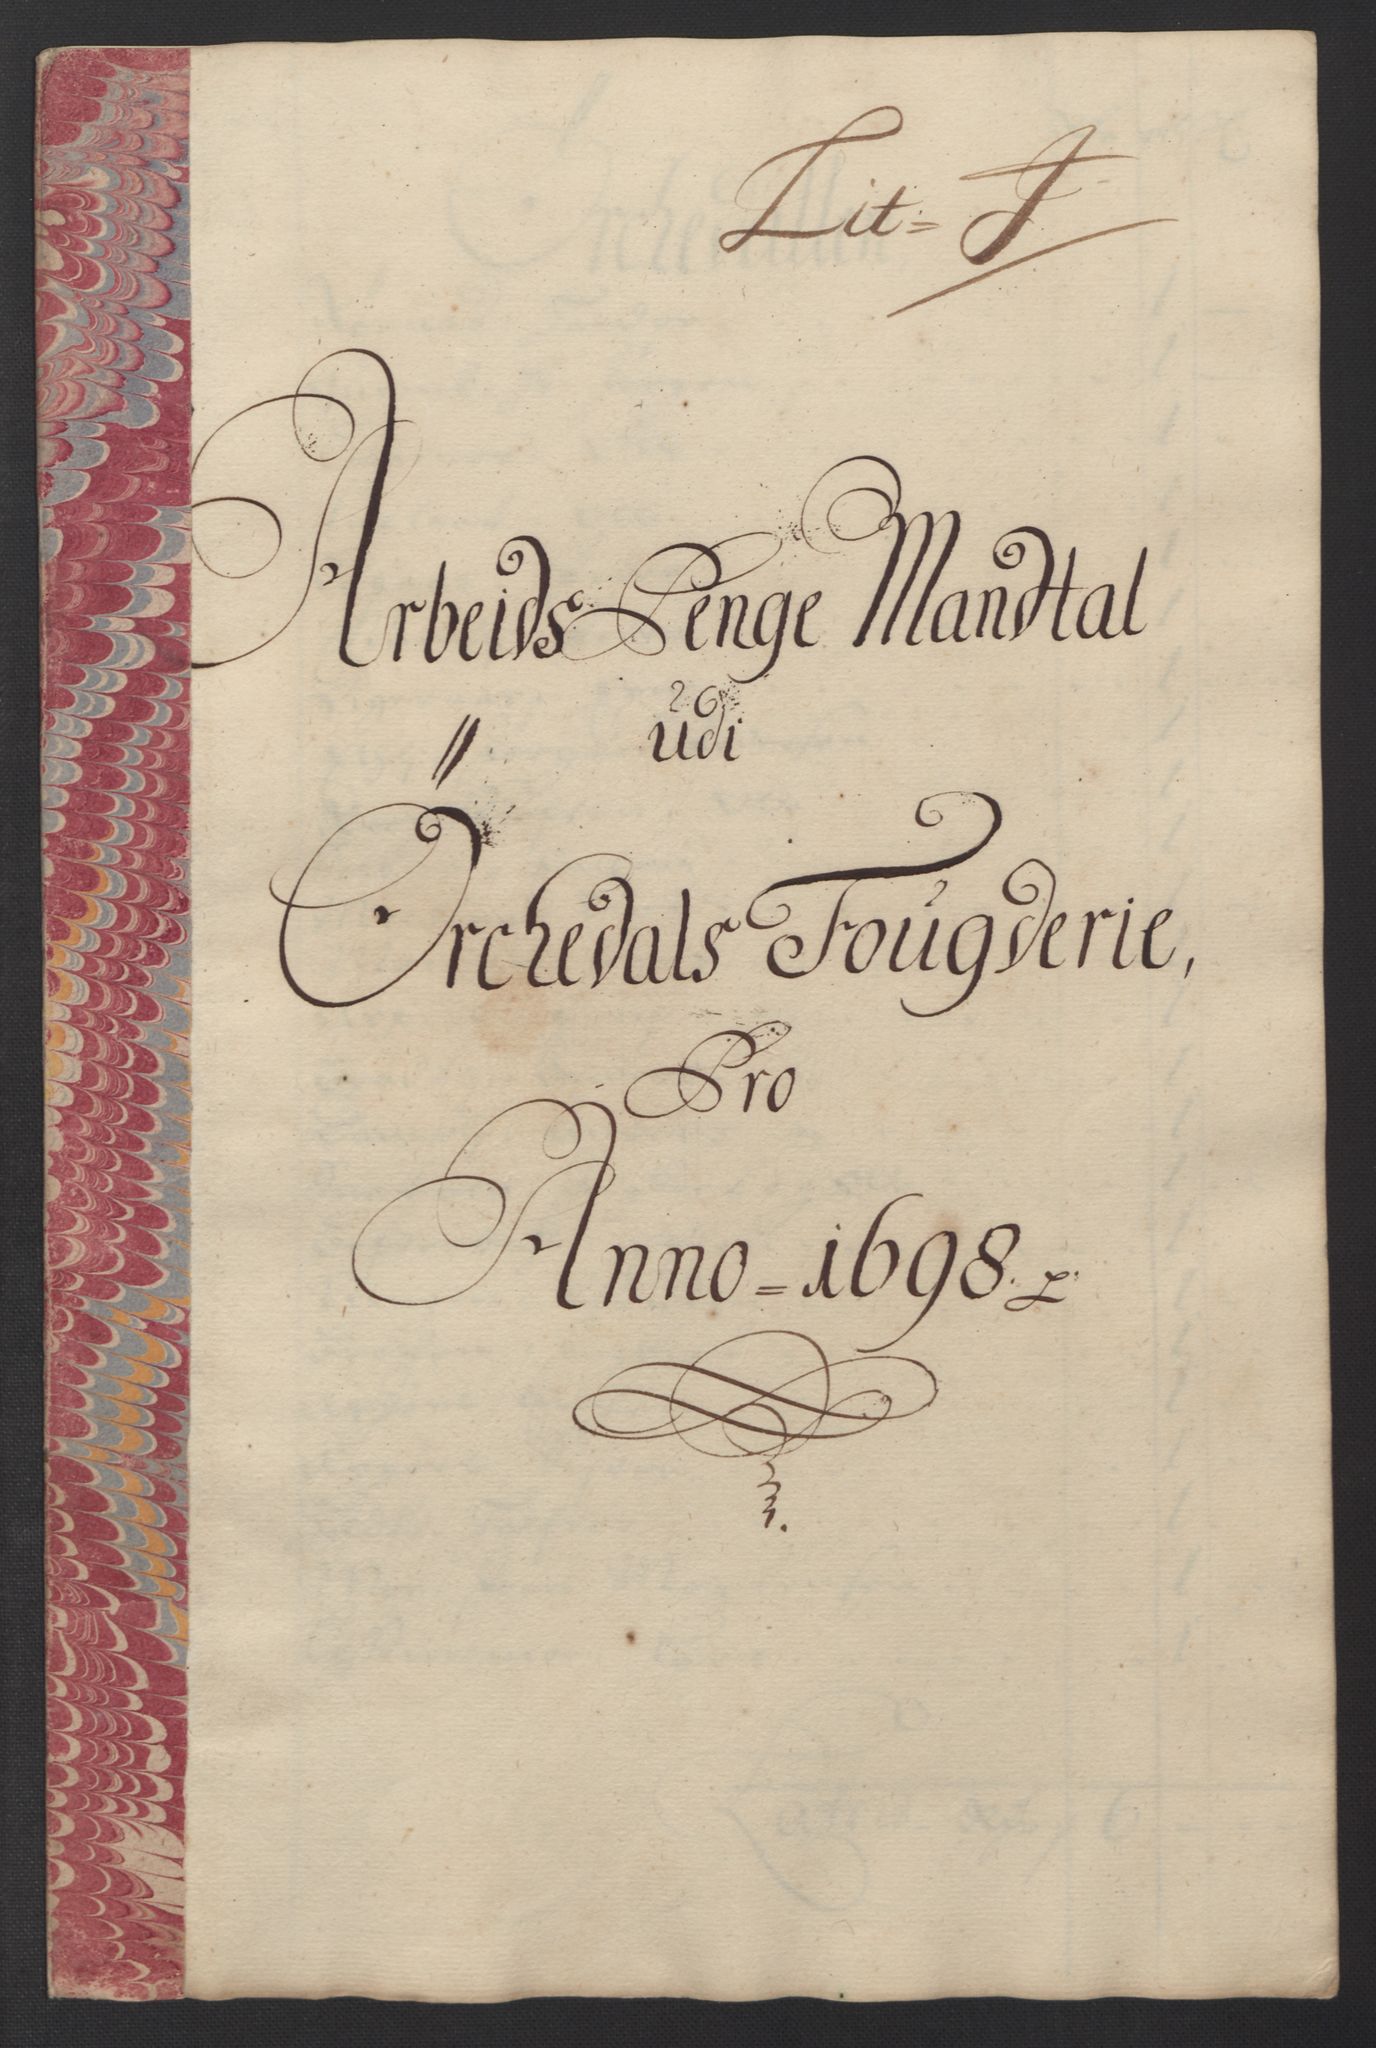 Lit= J
Arbeids Penge Mandtal
udi
Orchedals Fougderie,
Pro
Anno = 1698.